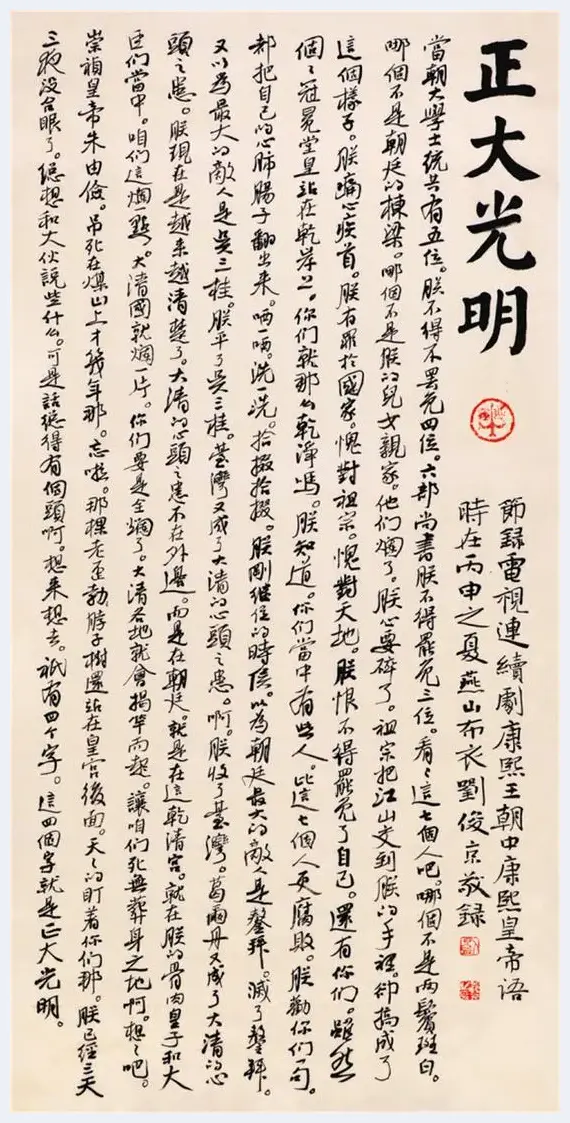 正大光明
節録電視連續劇康熙王朝中康熙皇帝语
時在丙申之夏燕山布衣劉俊京敬録
當朝大學士統共有五位。朕不得不罢免四位。六部尚書朕不得罷免三位。看〻這七個人吧。哪個不是两鬓斑白。
哪個不是朝廷的棟梁。哪個不是朕的兒女親家。他们爛了。朕心要碎了。祖宗把江山交到朕的手裡。卻搞成了
這個樣子。朕痛心疾首。朕有罪於國家。愧對祖宗。愧對天地。朕恨不得罷免了自己。還有你们。雖然
個〻冠冕堂皇站在乾岸上。你们就那么乾淨嗎。朕知道。你们當中有些人。比這七個人更腐敗。朕勸你们一句。
都把自己的心肺腸子翻出来。晒一晒。洗一洗。拾掇拾掇。朕剛継位的時候。以為朝廷最大的敵人是鳌拜。滅了鳌拜。
又以為最大的敵人是吴三桂。朕平了吴三桂。臺灣又成了大清的心頭之患。啊。朕收了臺灣。葛爾丹又成了大清的心
頭之患。朕現在是越来越清楚了。大清的心頭之患不在外邊。而是在朝廷。就是在這乾清宫。就在朕的骨肉皇子和大
臣们當中。咱们這爛一點。大清國就爛一片。你们要是全爛了。大清各地就會揭竿而起。讓咱们死無葬身之地啊。想〻吧。
崇禎皇帝朱由儉。吊死在煤山上才幾年那。忘啦。那棵老歪勃脖子樹還站在皇宫後面。天〻的盯着你们那。朕已經三天
三夜没合眼了。總想和大伙說些什么。可是話總得有個頭啊。想来想去。祗有四个字。這四個字就是正大光明。